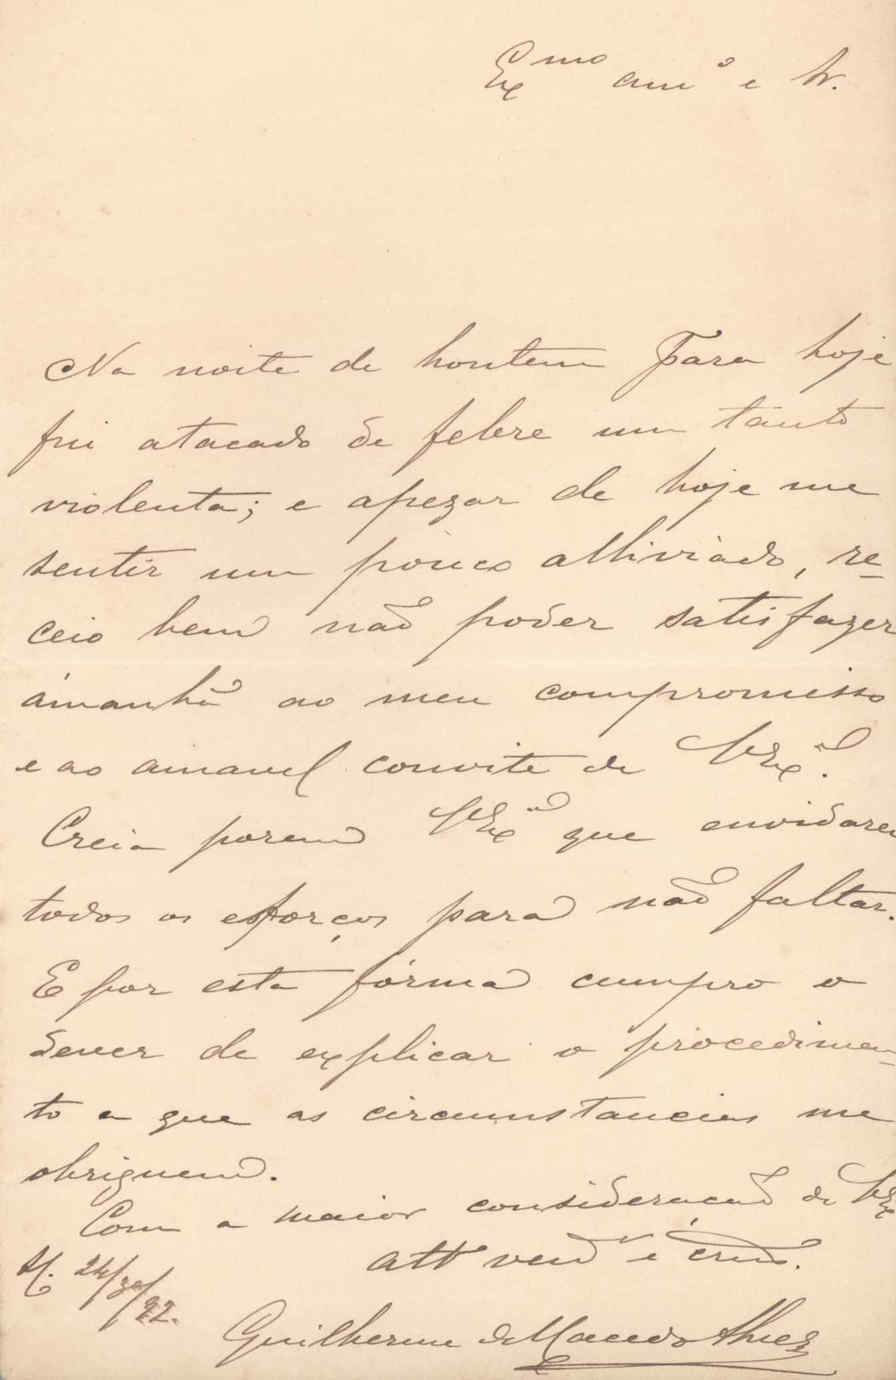 Ex^mo am^o e Sr.
Na noite de hontem para hoje
fui atacado de febre um tanto
violenta; e apezar de hoje me
sentir um pouco alliviado, re-
ceio bem não poder satisfazer
ámanhã ao meu compromisso
e ao amavel convite de VEx^a.
Creia porem VEx^a que envidarei
todos os esforços para não faltar.
E por esta fórma cumpro o
dever de explicar o procedimen-
to a que as circumstancias me
obriguem.
Com a maior consideração de VEx
att^o ven^or e cr^do.
24/ /92.
Guilherme de Macedo